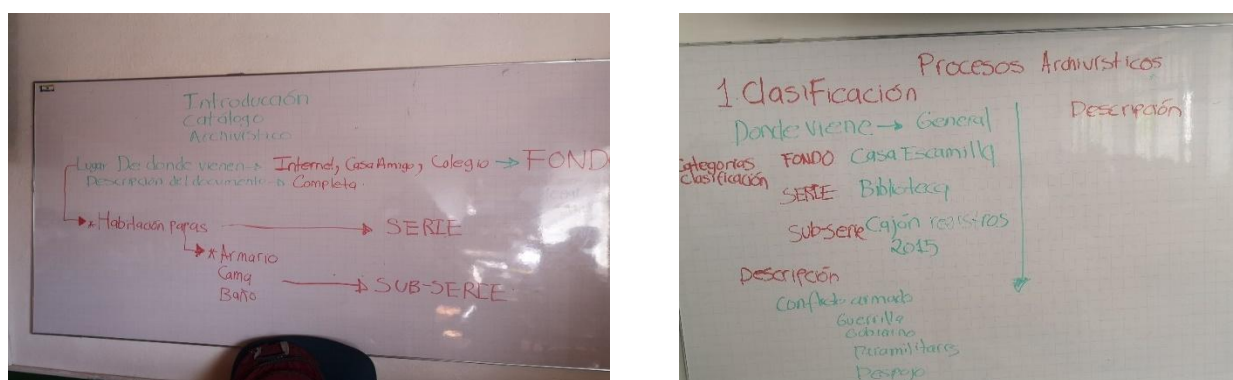 Introducción
Catálogo
Archivístico
Lugar De donde vienen → Internet, Casa Amigo, Colegio → FOND
Descripción del documento → Completa.
* Habitación papas → SERIE
* Armario
Cama → SUB-SERIE
Baño
Procesos Archivísticos
1. Clasificación
Descripción
Donde viene → General
Categorías FONDO Casa Escamilla
clasificación
SERIE Biblioteca
Sub-serie Cajón registros
2015
Descripción
Conflicto armado
Guerrilla
Gobierno
Paramilitares
Despojo